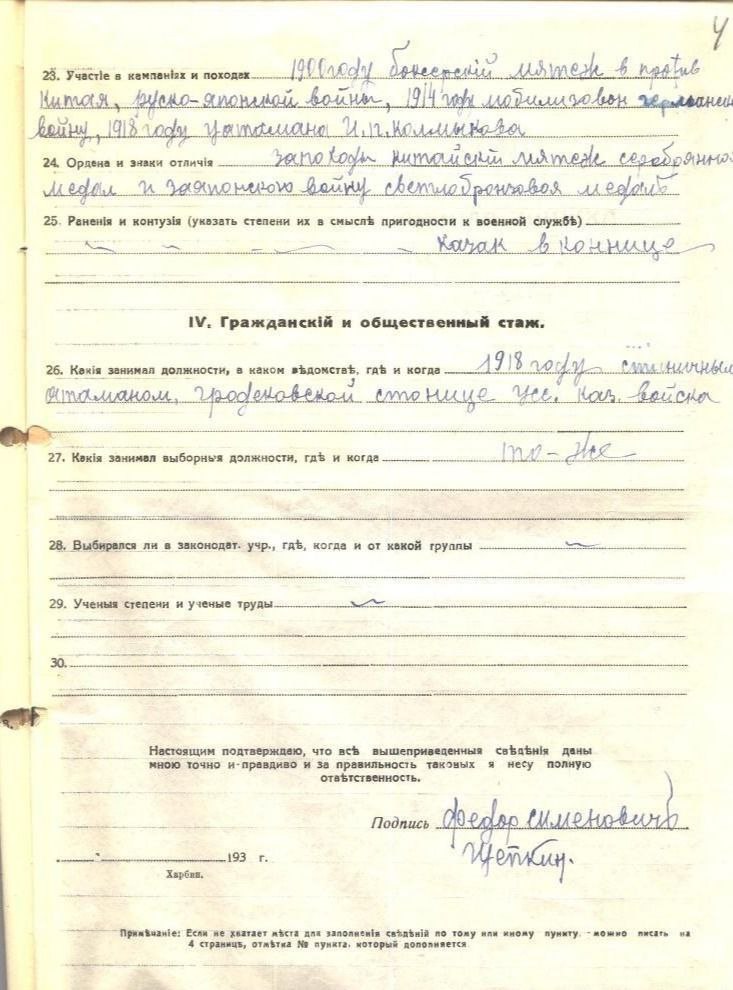 4
23. Участіе в кампаніях и походах 1900 году боксерскій мятеж в против
Китая, руско-японской войны, 1914 году мобилизован германскую
войну, 1918 году у атамана И.П. Колмыкова
24. Ордена и знаки отличія за походы китайскій мятеж серебрянной
медал и за японскою войну светлобронзовая медаль
25. Раненія и контузія (указать степени их в смыслѣ пригодности к военной службѣ)
казак в коннице
IV. Гражданскій и общественный стаж.
26. Какія занимал должности, в каком вѣдомствѣ, гдѣ и когда 1918 году станичным
атаманом, гродековской станице Усс. Каз. войска
27. Какія занимал выборныя должности, гдѣ и когда то-же
28. Выбирался ли в законодат. учр., гдѣ, когда и от какой группы
29. Ученыя степени и ученые труды
30.
Настоящим подтверждаю, что всѣ вышеприведенныя свѣдѣнія даны
мною точно и правдиво и за правильность таковых я несу полную
отвѣтственность.
Подпись Федор Сименовичъ
Щепкин.
193 г.
Харбин.
Примѣчаніе: Если не хватает мѣста для заполненія свѣдѣній по тому или иному пункту - можно писать на
4 страницѣ, отмѣтка № пункта, который дополняется.